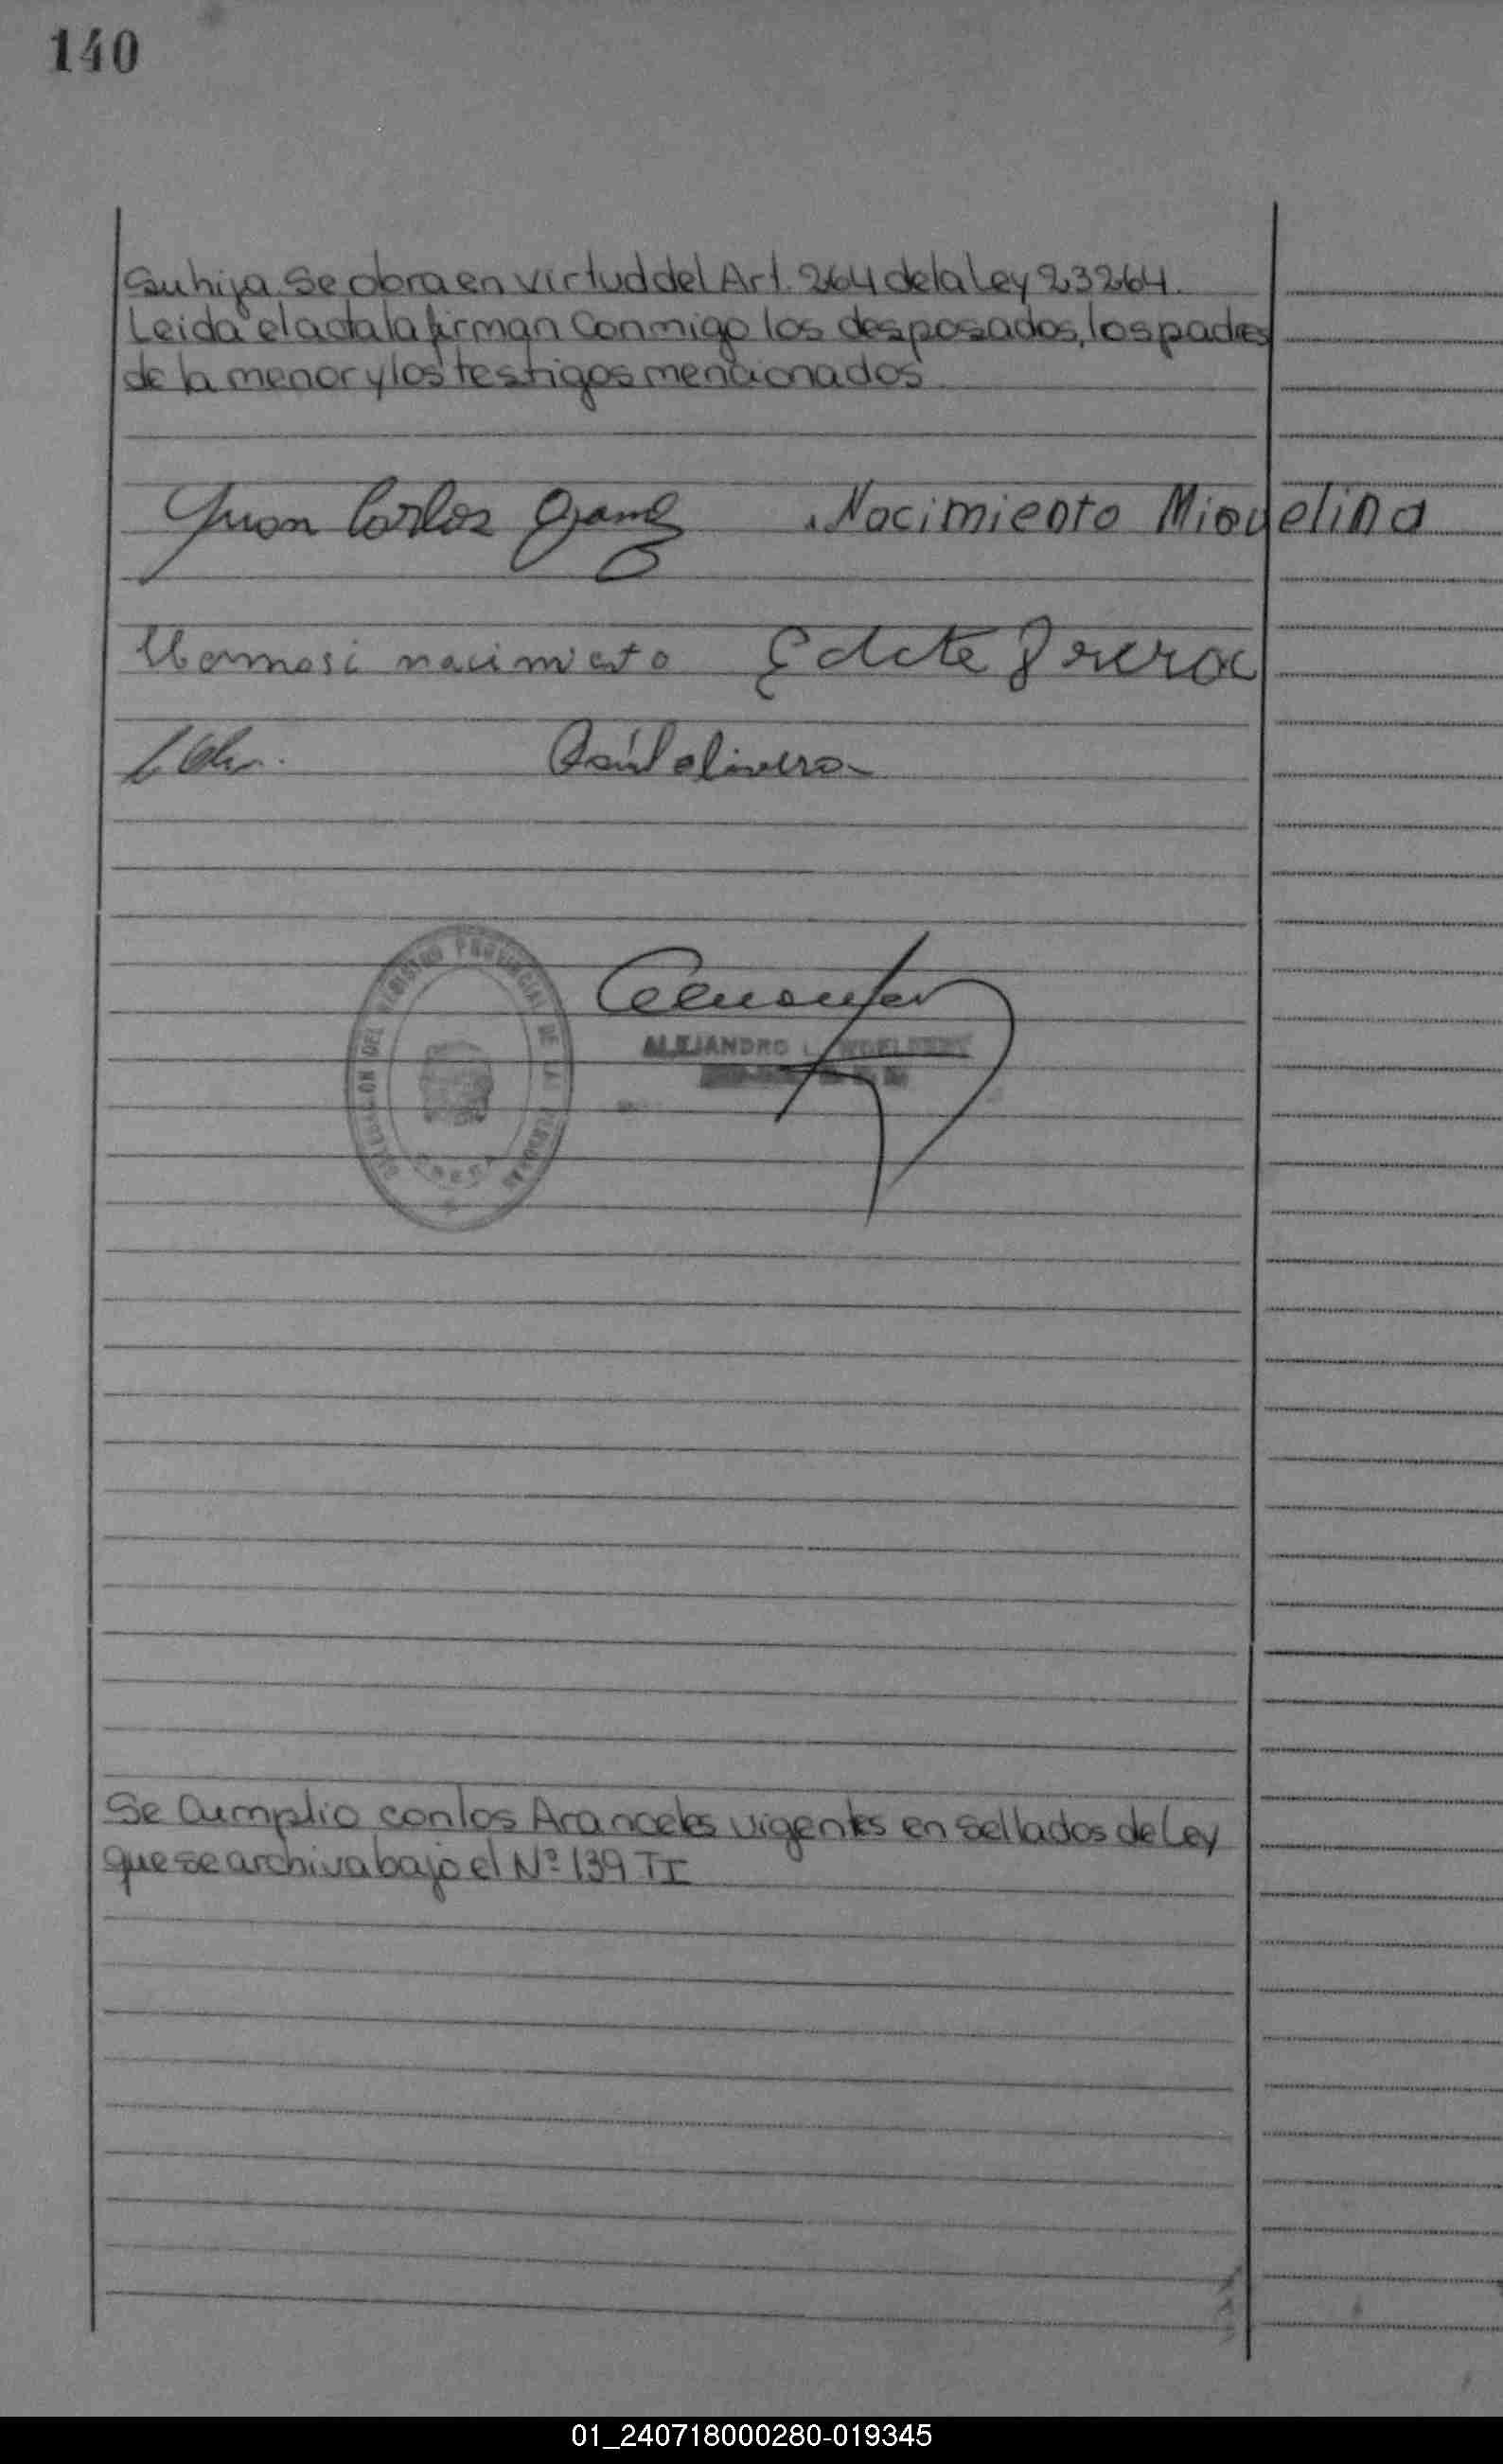 140
Su hija se obra en virtud del Art. 264 de la Ley 23264.
Leida el acta la firman Conmigo los desposados, los padres
de la menor y los testigos mencionados
Juan Carlos
Nacimiento Miquelina
nacimiento
Raúl olivera
DEL REGISTRO PROVINCIAL DE LA
ALEJANDRO
Se Cumplio con los Aranceles vigentes en sellados de Ley
que se archiva bajo el Nº 139 TI
01_240718000280-019345